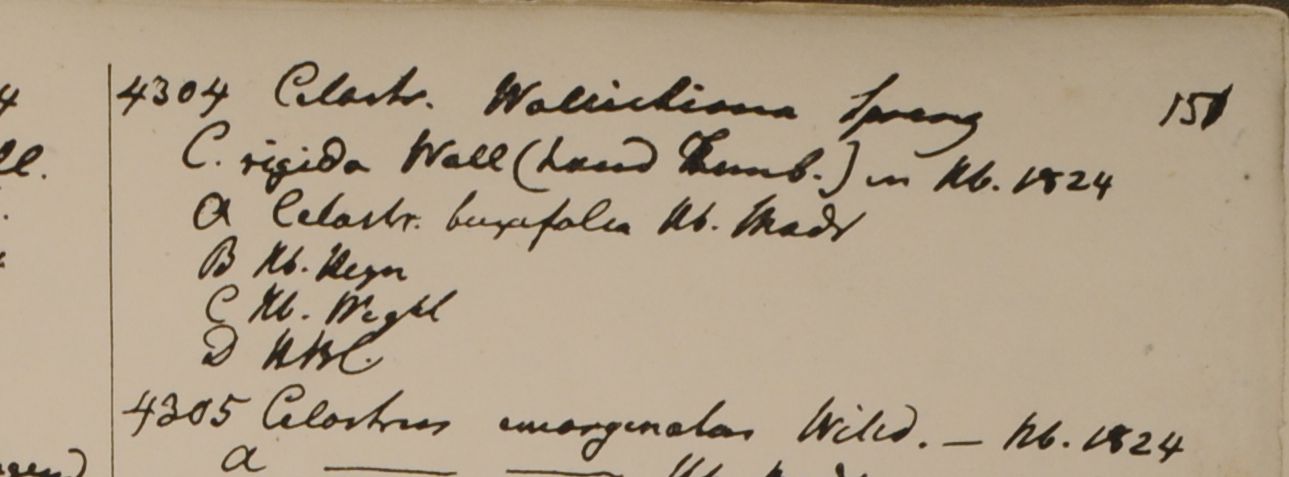 4304 Celastr. Wallichiana Spreng 151
C. rigida Wall (haud Thunb.) in Hb. 1824
A Celastr. buxifolia Hb. Madr
B Hb. Heyn
C Hb. Wight
D HBC.
4305 Celastrus emarginatus Willd. — Hb. 1824
a — —